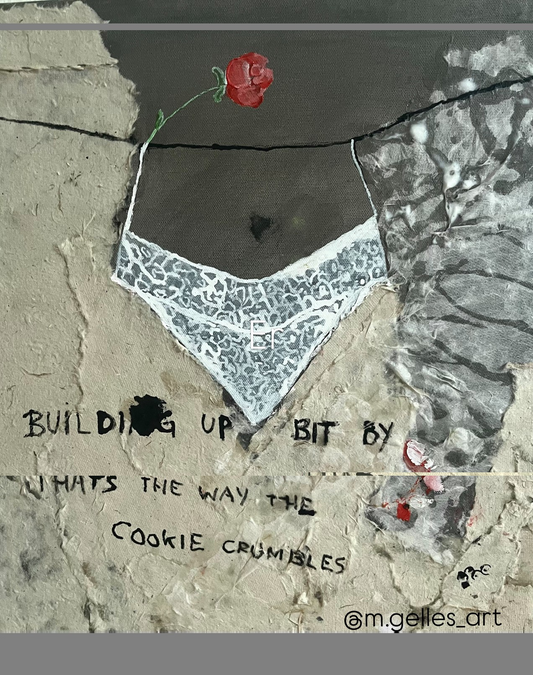 BUILDING UP BIT BY
THATS THE WAY THE
COOKIE CRUMBLES
@m.gelles_art